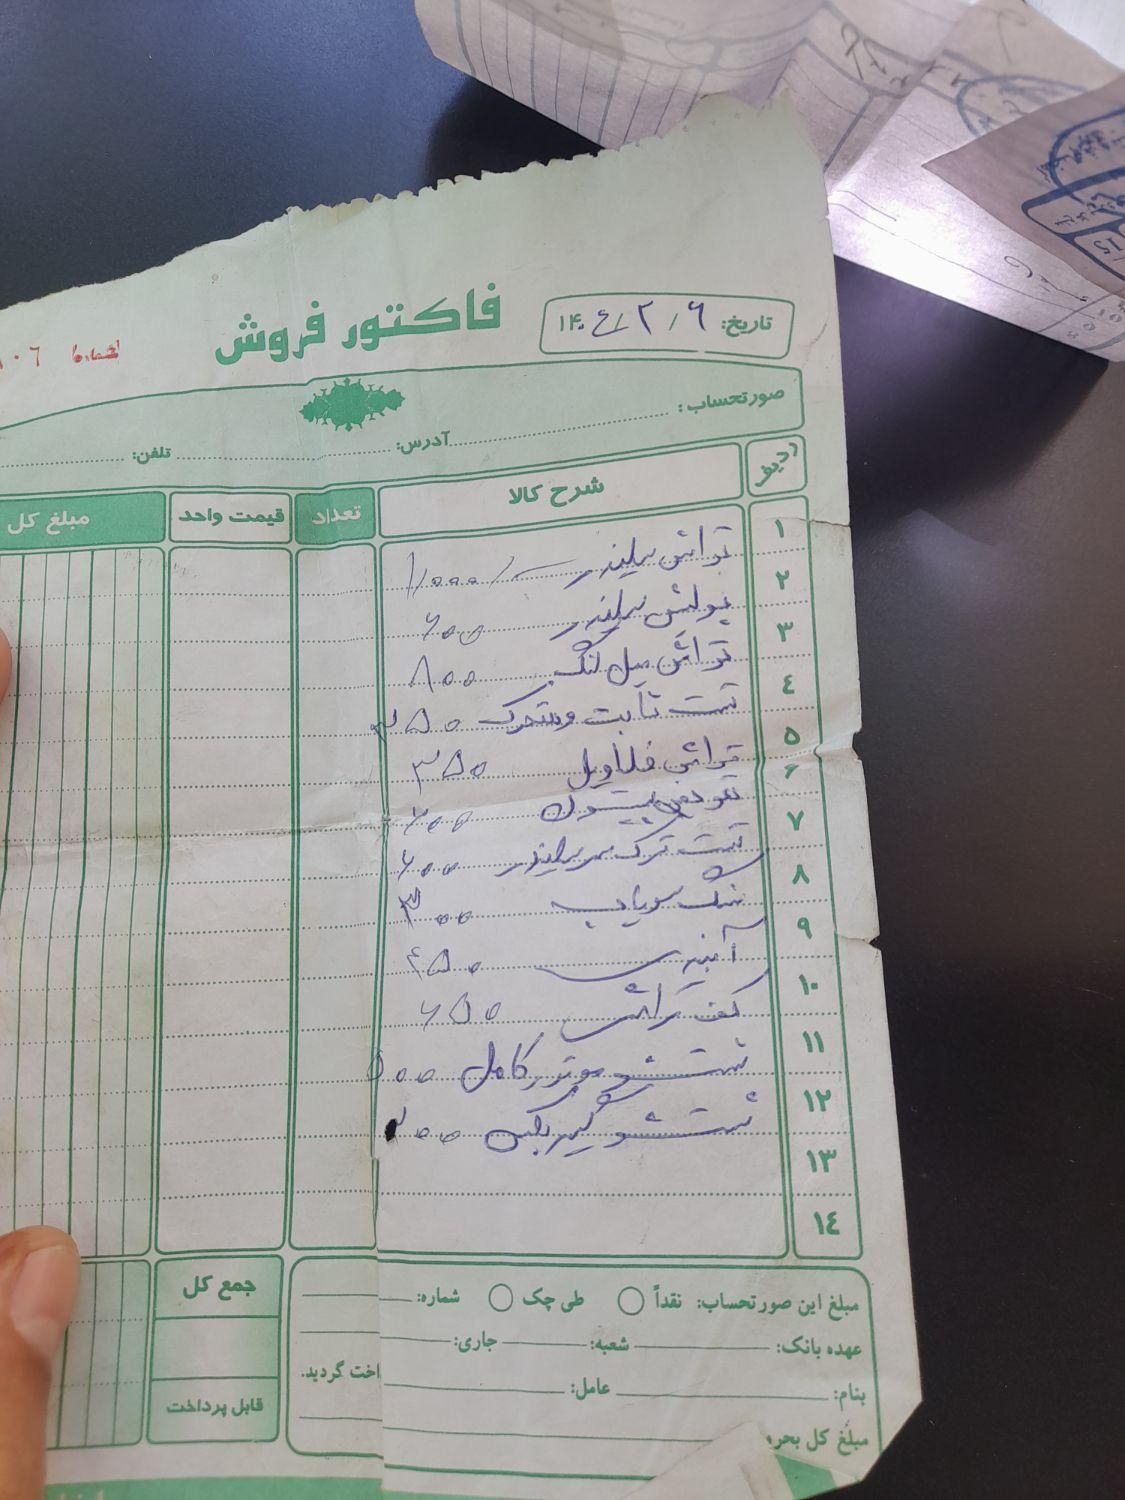 فاکتور فروش
تاریخ: ۱۴۰۴/۲/۶
شماره ۱۰۶
صورتحساب:
آدرس: تلفن:
ردیف شرح کالا تعداد قیمت واحد مبلغ کل
۱ تراش سیلندر ۱/۰۰۰/
۲ پولیش سیلندر ۶۰۰
۳ تراش میل لنگ ۸۰۰
۴ تست ثابت و متحرک ۳۵۰
۵ تراش فلاویل ۳۵۰
۶ تعویض پیستون ۲۰۰
۷ تست ترک سرسیلندر ۶۰۰
۸ سنگ سوپاپ ۳۰۰
۹ آببندی ۴۵۰
۱۰ کف تراش ۶۵۰
۱۱ شستشو موتور کامل ۵۰۰
۱۲ شستشو گیربکس ۲۰۰
۱۳
۱۴
مبلغ این صورتحساب: نقداً طی چک شماره:
جمع کل
عهده بانک: شعبه: جاری:
بنام: عامل: اخت گردید.
قابل پرداخت
مبلغ کل بحرو